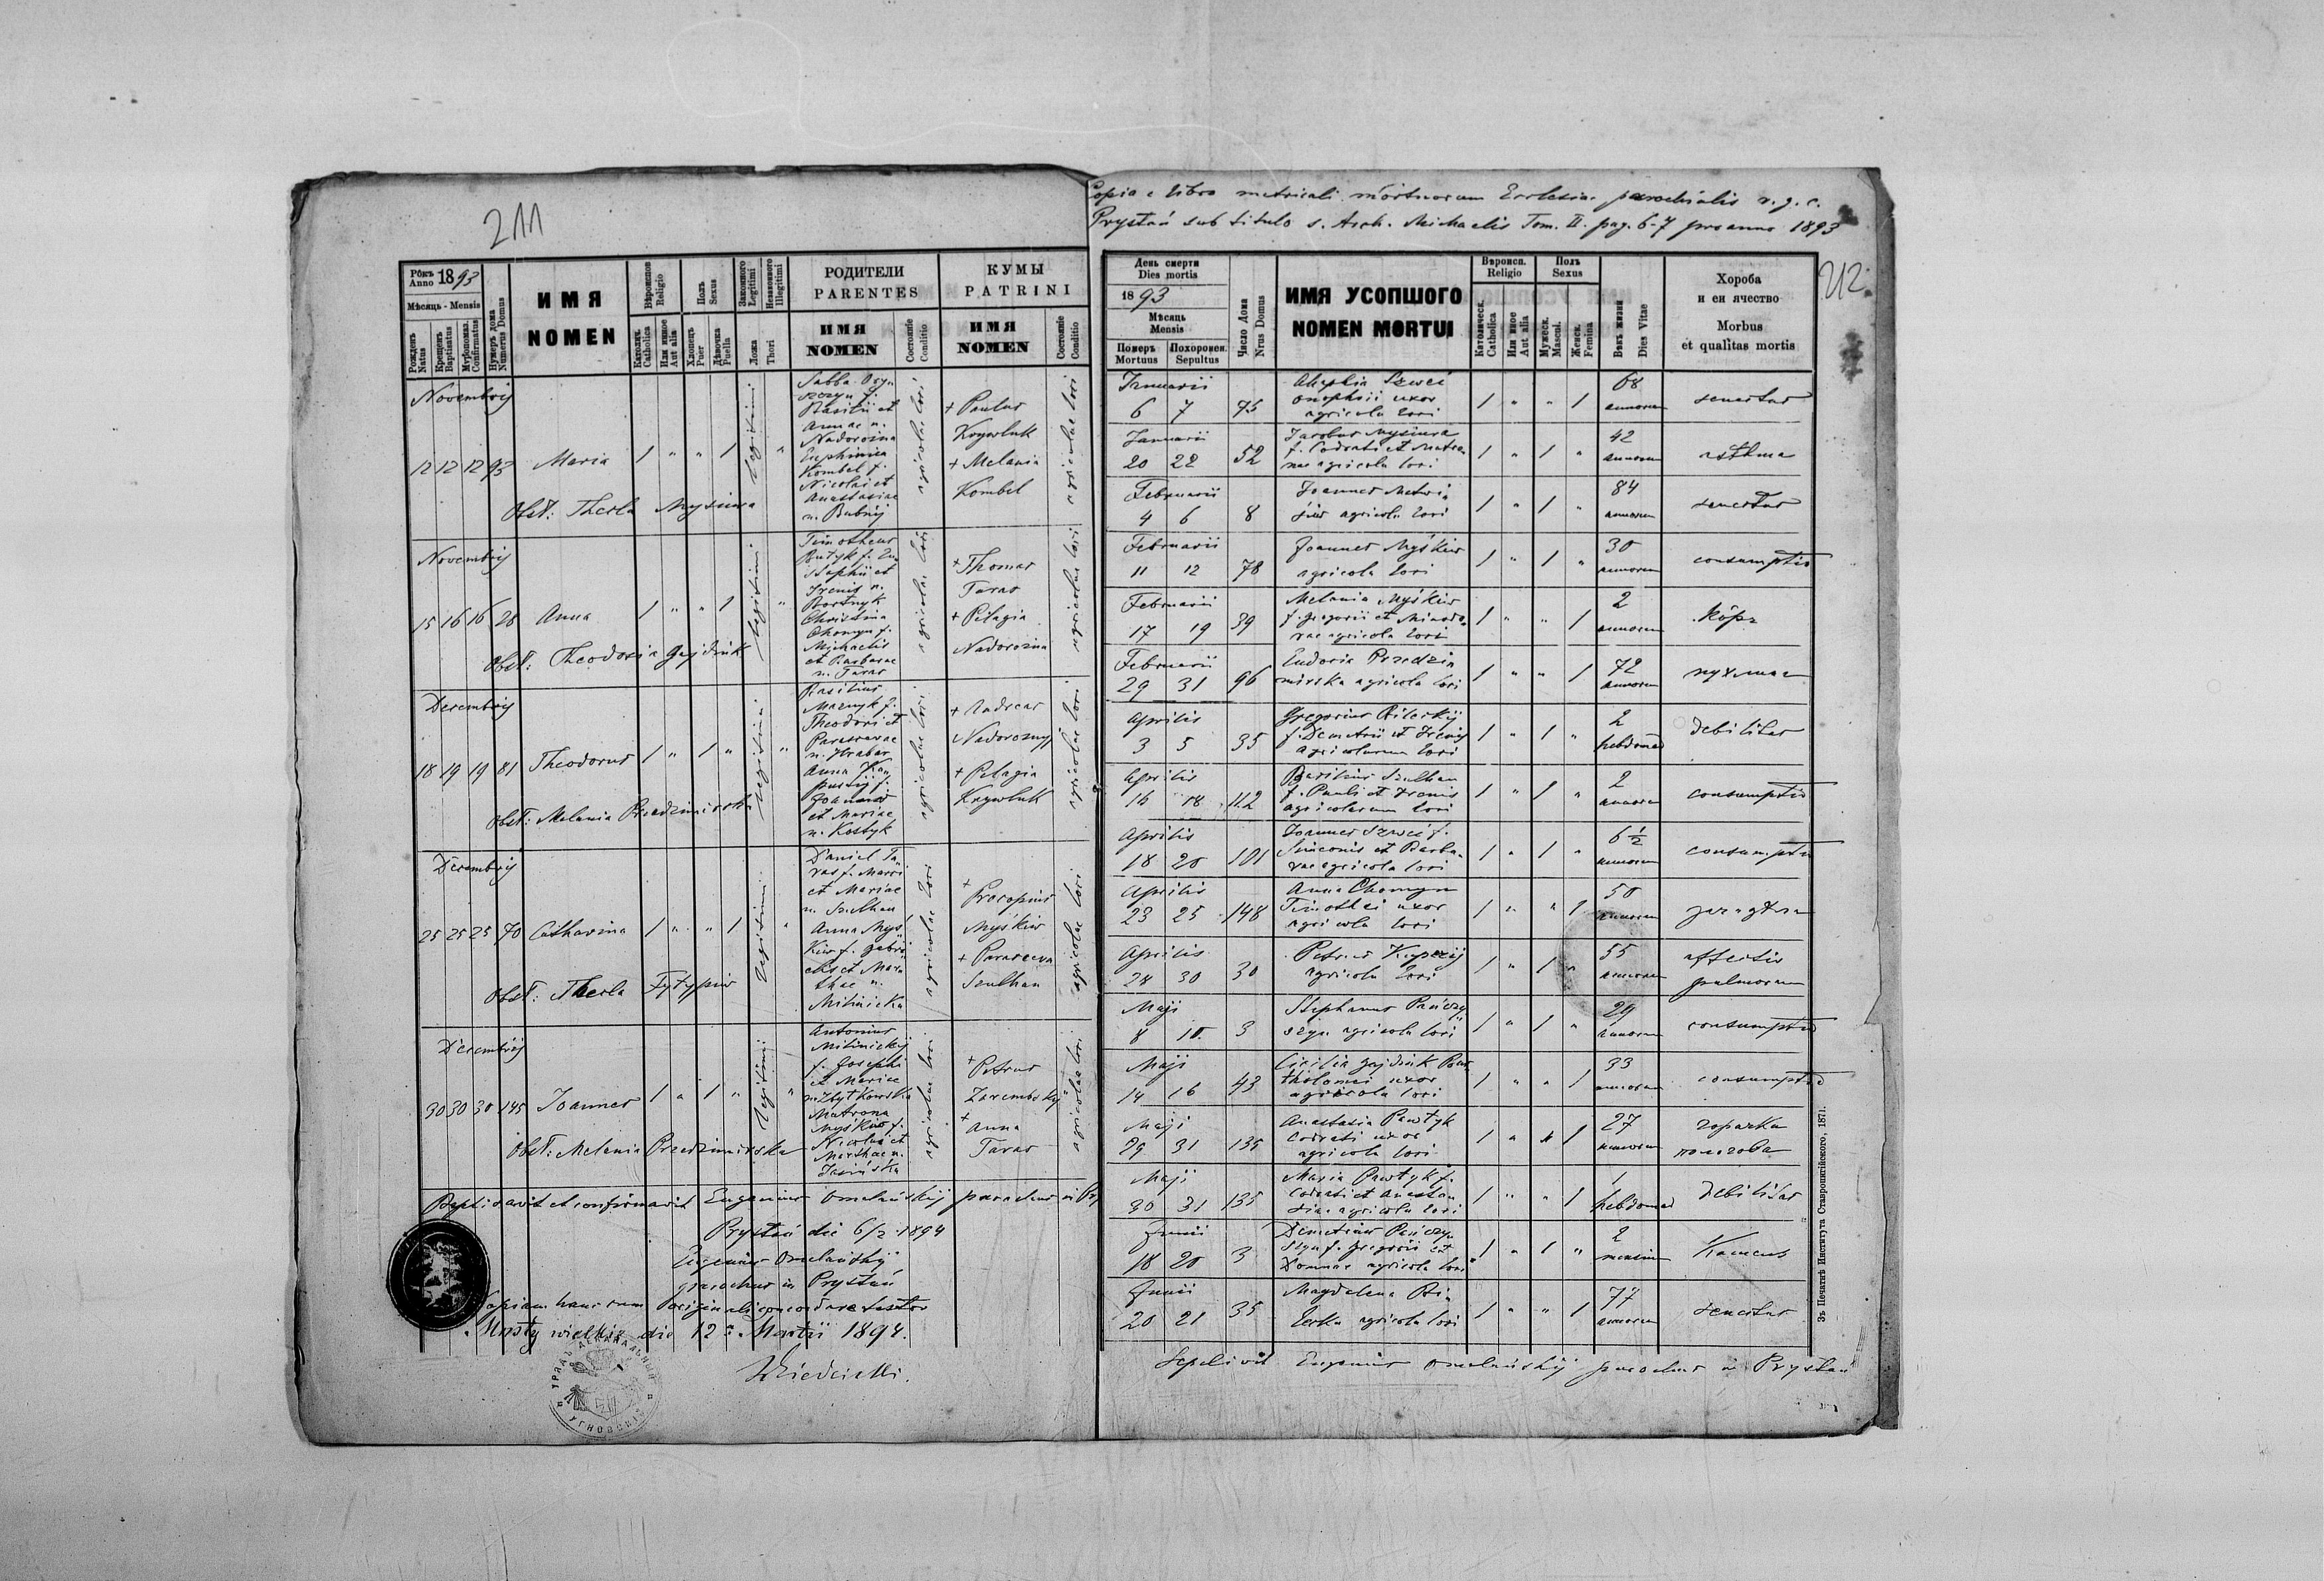 211
Рôкъ Anno 1893
Мѣсяць - Mensis
Рожденъ Natus
Крещенъ Baptisatus
Мѵропомаз. Confirmatus
Нумеръ дома Numerus Domus
ИМЯ
NOMEN
Вѣроиспов Religio
Католич. Catholica
Или инное Aut alia
Полъ Sexus
Хлопець Puer
Дѣвочка Puella
Законного Legitimi
Незаконного Illegitimi
Ложа
Thori
РОДИТЕЛИ
PARENTES
ИМЯ
NOMEN
Состоянiе Conditio
КУМЫ
PATRINI
ИМЯ
NOMEN
Состоянiе Conditio
Novembrij
12 12 12 93 Maria 1 " " 1 legitimi "
Basilii et
Annae n.
Nadorożna
Euphimia
Kombel f.
Nicolai et
Anastasiae
n. Bubnij
agricolae loci
+ Paulus
Krywluk
+ Melania
Kombel
agricolae loci
Obst: Thecla Mysiura
Novembrij
15 16 16 28 Anna 1 " " 1 legitimi "
Timotheus
Irenis n.
Bortnyk
Christina
Chomyn f.
Michaelis
et Barbarae
n. Taras
agricolae loci
+ Thomas
Taras
+ Pelagia
Nadorożna
agricolae loci
Obst: Theodosia Gajdiuk
Decembrij
18 19 19 81 Theodorus 1 " 1 " legitimi "
Basilius
Maznyk f.
Theodori et
Parascevae
n. Hrabar
Anna
Joannis
et Mariae
n. Kostyk
agricolae loci
+ Andreas
Nadorożnyj
+ Pelagia
Krywluk
agricolae loci
Obst: Melania Przedzimirska
Decembrij
25 25 25 70 Catharina 1 " " 1 legitimi "
Daniel Ta-
ras f. Marci
et Mariae
n. Szulhan
Anna Myś-
kiw f. Gabri-
elis et Mar-
thae n.
Milinicka
agricolae loci
+ Procopius
Myśkiw
+ Parasceva
Szulhan
agricolae loci
Obst: Thecla Fytypiw
Decembrij
30 30 30 145 Joannes 1 " 1 " legitimi "
Antonius
Milinickij
f. Josephi
et Mariae
n. Zbytkowska
Matrona
Myśkiw f.
Nicolai et
Marthae n.
Jasińska
agricolae loci
+ Petrus
Zarembskyj
+ Anna
Taras
agricolae loci
Obst: Melania Przedzimirska
Baptisavit et confirmavit Eugenius Omelańskij parochus in
Prystań die 6/2 1894
Eugenius Omelańskij
parochus in Prystań
Copiam hanc cum originali concordare testor
Mosty wielkie die 12 Martii 1894.
212
Copia e libro metricali mortuorum Ecclesiae parochialis r. g. c.
Prystań sub titulo s. Arch. Michaelis Tom. II. pag. 6-7 pro anno 1893
День смерти
Dies mortis
1893
Мѣсяць
Mensis
Померъ Mortuus
Похоронен. Sepultus
Число Дома
Nrus Domus
ИМЯ УСОПШОГО
NOMEN MORTUI
Вѣроисп. Religio
Католическ. Catholica
Или иное Aut alia
Полъ Sexus
Мужеск. Mascul.
Женск. Femina
Вѣкъ жизни
Dies Vitae
Хороба
и еи ячество
Morbus
et qualitas mortis
Januarii
6 7 75 Szweć
Onophrii uxor
agricola loci 1 " " 1 68 annorum senectus
Januarii
20 22 52 Jacobus Mysiura
f. Codrati et Matro-
nae agricola loci 1 " 1 " 42 annorum asthma
Februarii
4 6 8 Joannes Matwi-
agricola loci 1 " 1 " 84 annorum senectus
Februarii
11 12 78 Joannes Myśkiw
agricola loci 1 " 1 " 30 annorum consumptio
Februarii
17 19 39 Melania Myśkiw
f. Gregorii et Minodo-
rae agricola loci 1 " " 1 2 annorum Кôръ
Februarii
29 31 96 Eudocia Przedzi-
mirska agricola loci 1 " " 1 72 annorum
Aprilis
3 5 35 Gregorius Bileckij
f. Demetrii et Irenis
agricolarum loci 1 " 1 " 2 hebdomad debilitas
Aprilis
16 18 112 Basilius Szulhan
f. Pauli et Irenis
agricolarum loci 1 " 1 " 2 annorum consumptio
Aprilis
18 20 101 Joannes Szweć f.
Simeonis et Barba-
rae agricola loci 1 " 1 " 6 1/2 annorum consumptio
Aprilis
23 25 148 Anna Chomyn
Timothei uxor
agricola loci 1 " " 1 50 annorum
Aprilis
28 30 30 Petrus
agricola loci 1 " 1 " 55 annorum affectio
pulmorum
Maji
8 10 3 Stephanus Pańczy-
szyn agricola loci 1 " 1 " 29 annorum consumptio
Maji
14 16 43 Cicilia Gajdiuk Bar-
tholomei uxor
agricola loci 1 " " 1 33 annorum consumptio
Maji
29 31 135 Anastasia Pawtyk
Codrati uxor
agricola loci 1 " " 1 27 annorum горячка
пологова
Maji
30 31 135 Maria Pawtyk f.
Codrati et Anasta-
siae agricola loci 1 " " 1 1 hebdomad debilitas
Junii
18 20 3 Demetrius Pańczy-
szyn f. Gregorii et
Domnae agricola loci 1 " 1 " 2 mensium
Junii
20 21 35 Magdalena Bi-
lecka agricola loci 1 " " 1 77 annorum senectus
Sepelivit Eugenius Omelańskij parochus in Prystań
Зъ Печатнѣ Института Ставропигiйского, 1871.